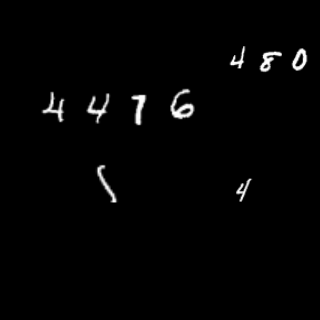 480
4476
4